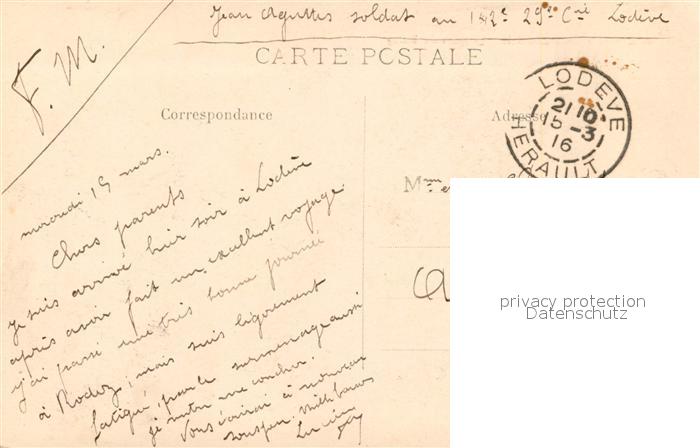 Jean Aguttes soldat au 142e 29e Cie Lodève
F. M.
CARTE POSTALE
Correspondance
Adresse
LODEVE
21 10
15 -3
16
HERAULT
mercredi 15 mars.
Chers parents
Je suis arrivé hier soir à Lodève
après avoir fait un excellent voyage
j'ai passé une très bonne journée
à Rodez, mais suis légèrement
fatigué par le surmenage aussi
je rentre me coucher.
Vous écrirai à nouveau
sous peu. Mille baisers
privacy protection
Datenschutz